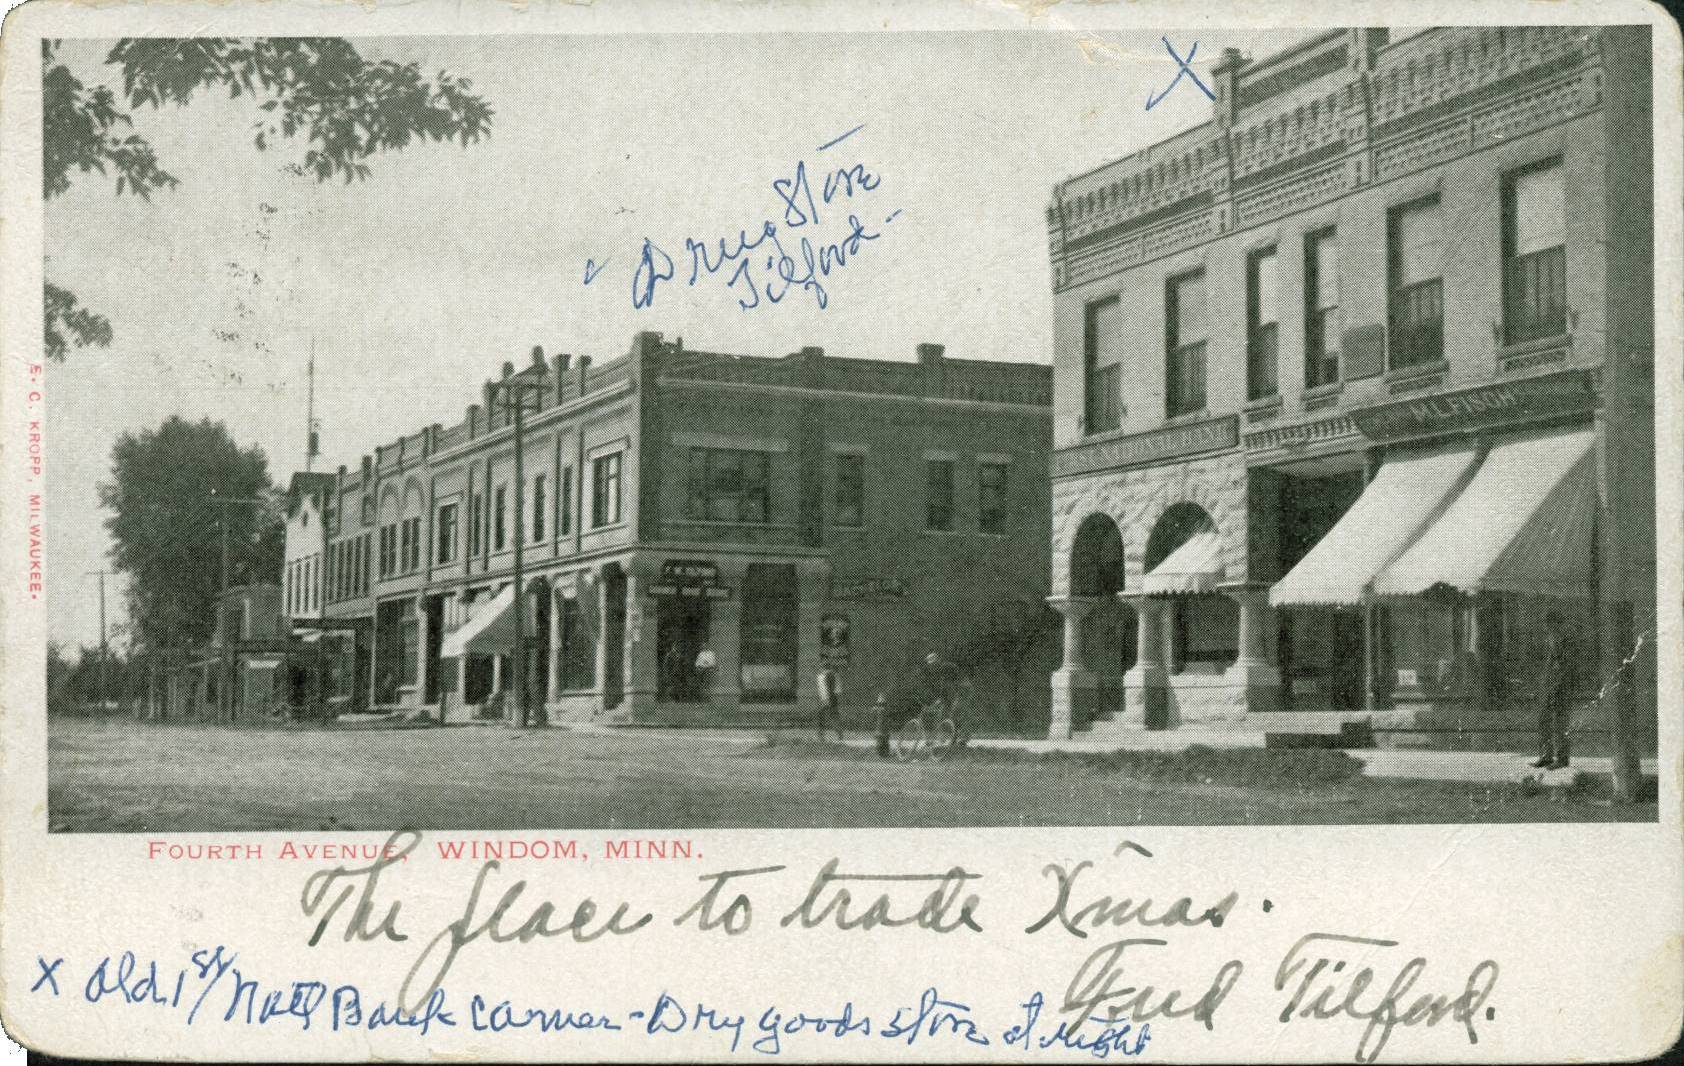 X
Drug Store
Tilford
M.L. FISCH
E. C. KROPP, MILWAUKEE.
FOURTH AVENUE, WINDOM, MINN.
The place to trade Xmas.
Fred Tilford.
X Old 1st Natl Bank corner - Dry goods store at right